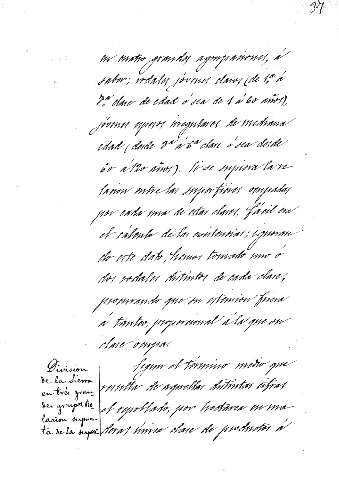 37
en cuatro grandes agrupaciones, á
saber; rodales jóvenes claros (de 1ª á
3ª clase de edad ó sea de 1 á 60 años),
jóvenes espesos irregulares de mediana
edad (desde 3ª á 6ª clase ó sea desde
60 á 120 años). Si se supiera la re
lacion entre las superficies ocupadas
por cada una de estas clases, fácil era
el cálculo de las existencias; ignoran
do este dato, hemos tomado uno ó
dos rodales distintos de cada clase,
procurando que su estension fuera
á tanteo, proporcional á la que su
clase ocupa.
Segun el término medio que
resulta de aquellas distintas cifras
el repoblado, por hectárea en ma
deras única clase de productos á
Division
de la Sierra
en tres gran
des grupos